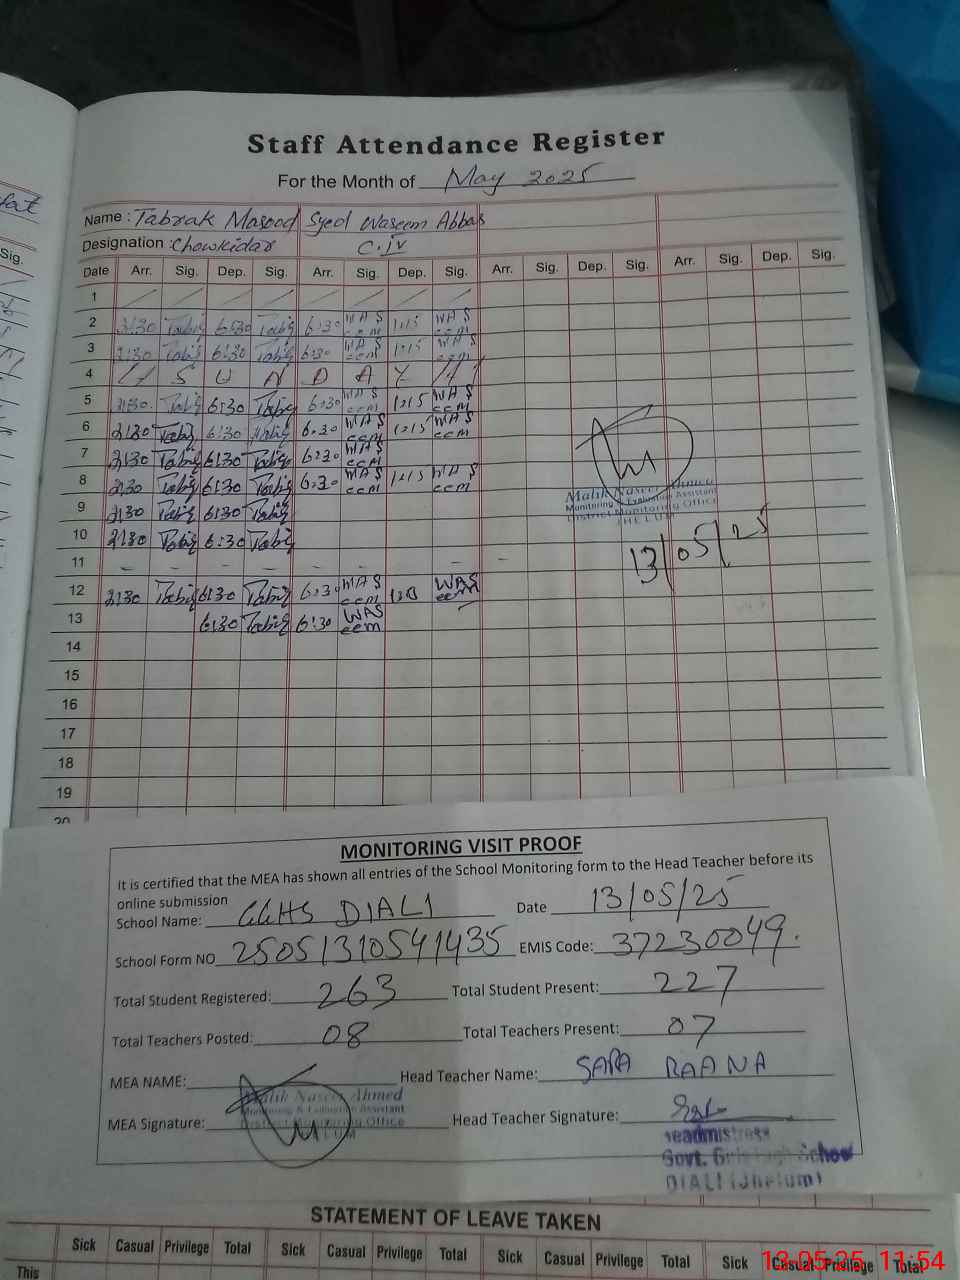 Staff Attendance Register
For the Month of May 2025
Name : Tabrak Masood Syed Waseem Abbas
Designation : Chowkidar C.iv
Date Arr. Sig. Dep. Sig. Arr. Sig. Dep. Sig. Arr. Sig. Dep. Sig. Arr. Sig. Dep. Sig.
1
2 6:30 6:30 WAS eem 1:15 WAS eem
3 6:30 6:30 WAS eem 1:15 WAS eem
4 S U N D A Y
5 6:30 6:30 WAS eem 1:15 WAS eem
6 6:30 6:30 WAS eem 1:15 WAS eem
7 6:30 6:30 WAS eem
8 6:30 6:30 WAS eem 1:15 WAS eem
9 6:30
10 6:30
11
12 6:30 6:30 WAS eem WAS eem
13 6:30 6:30 WAS eem
14
15
16
17
18
19
20
Malik Naseer Ahmed
Monitoring & Evaluation Assistant
District Monitoring Office
JHELUM
13/05/25
MONITORING VISIT PROOF
It is certified that the MEA has shown all entries of the School Monitoring form to the Head Teacher before its
online submission
School Name: GGHS DIALI Date 13/05/25
School Form NO 25051310541435 EMIS Code: 37230049.
Total Student Registered: 263 Total Student Present: 227
Total Teachers Posted: 08 Total Teachers Present: 07
MEA NAME: Head Teacher Name: SARA RAANA
Malik Naseer Ahmed
Monitoring & Evaluation Assistant
District Monitoring Office
JHELUM
MEA Signature: Head Teacher Signature:
Headmistress
Govt. Girls High School
DIALI (Jhelum)
STATEMENT OF LEAVE TAKEN
Sick Casual Privilege Total Sick Casual Privilege Total Sick Casual Privilege Total Sick Casual Privilege Total
This
13.05.25 11:54